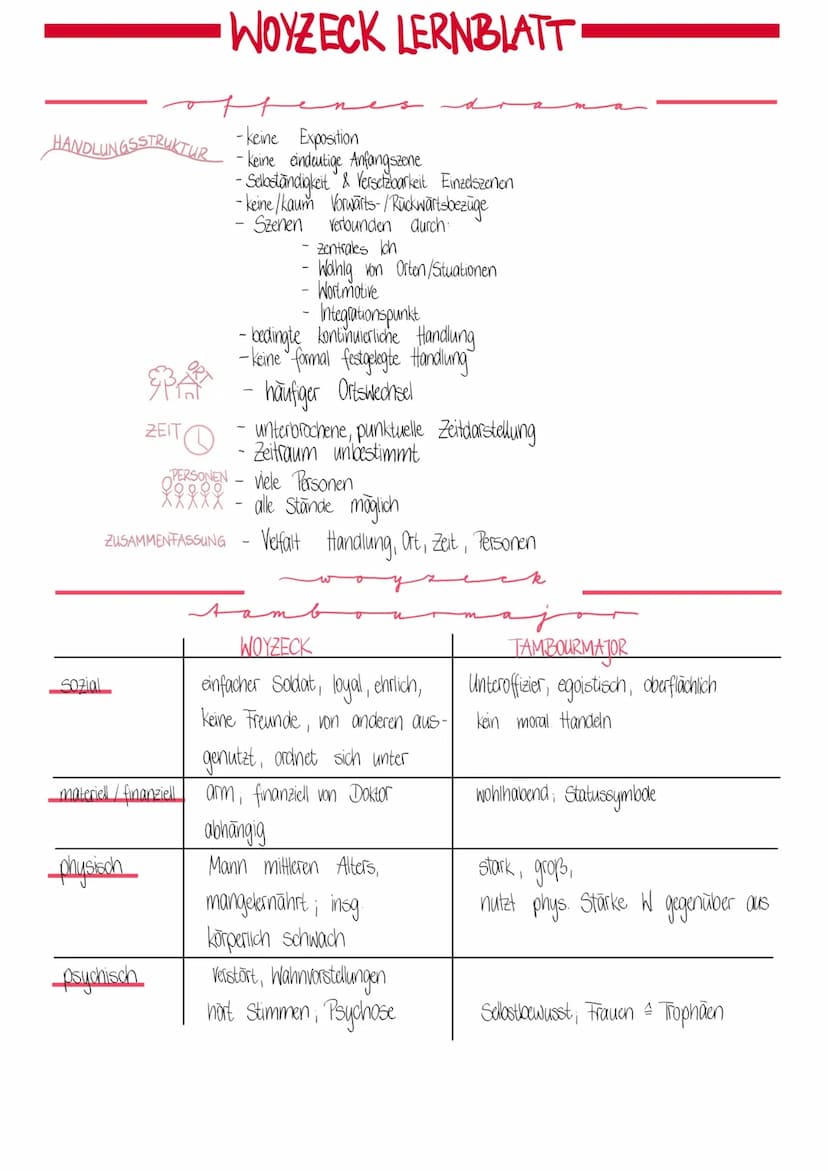 WOYZECK LERNBLATT
offenes drama
HANDLUNGSSTRUKTUR
- keine Exposition
- keine eindeutige Anfangszene
- Selbständigkeit & Versetzbarkeit Einzelszenen
- keine/kaum Vorwärts-/Rückwärtsbezüge
- Szenen verbunden durch:
- zentrales Ich
- Wahlg von Orten/Situationen
- Wortmotive
- Integrationspunkt
- bedingte kontinuierliche Handlung
- keine formal festgelegte Handlung
ORT
- häufiger Ortswechsel
ZEIT
- unterbrochene, punktuelle Zeitdarstellung
- Zeitraum unbestimmt
PERSONEN
- viele Personen
- alle Stände möglich
ZUSAMMENFASSUNG - Vielfalt Handlung, Ort, Zeit, Personen
woyzeck
tambourmajor
WOYZECK TAMBOURMAJOR
sozial
einfacher Soldat, loyal, ehrlich,
keine Freunde, von anderen aus-
genutzt, ordnet sich unter
Unteroffizier, egoistisch, oberflächlich
kein moral. Handeln
materiell / finanziell
arm; finanziell von Doktor
abhängig
wohlhabend; Statussymbole
physisch
Mann mittleren Alters,
mangelernährt; insg.
körperlich schwach
stark, groß,
nutzt phys. Stärke W gegenüber aus
psychisch
verstört, Wahnvorstellungen
hört Stimmen; Psychose
Selbstbewusst; Frauen ≙ Trophäen